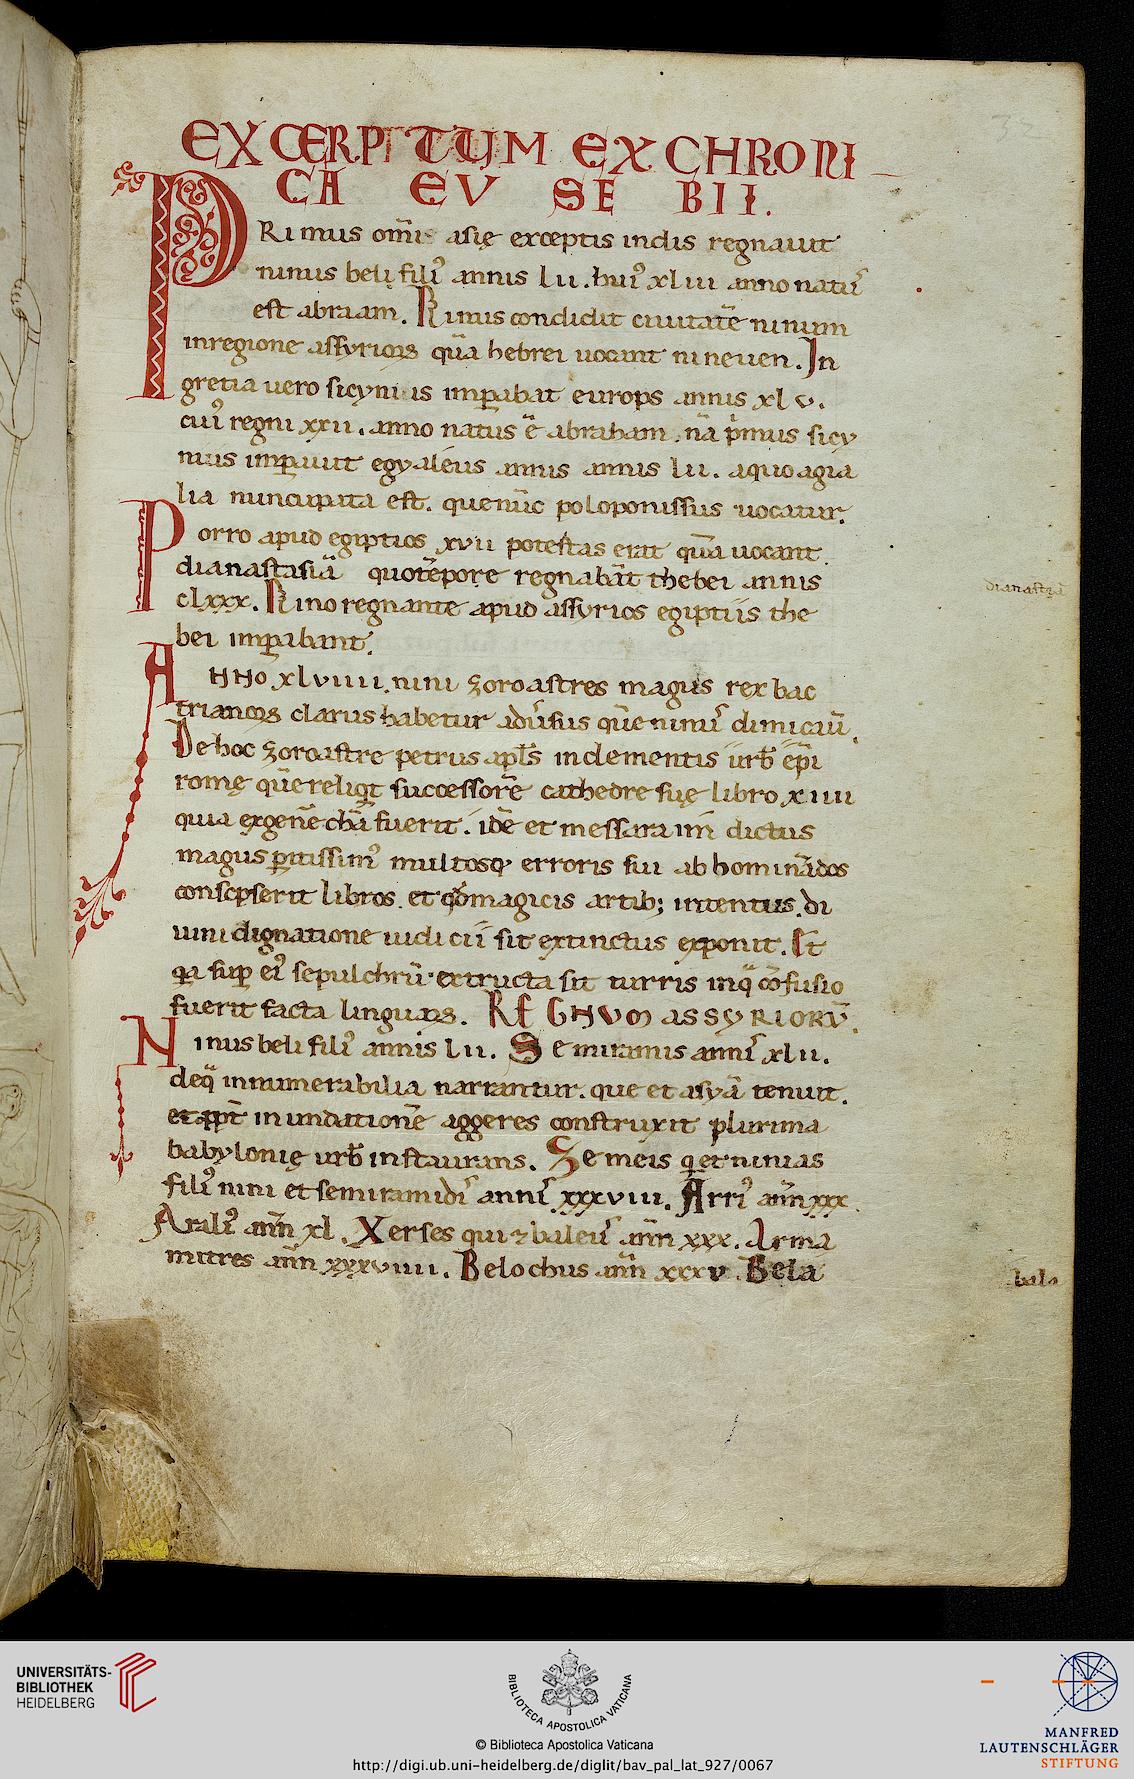 EXCERPTUM EX CHRONI
CA EV SE BII.
PRimus om̄i asię exceptis indis regnauit
ninus beli filiꝰ annis lii. huiꝰ xliii anno natuſ
est abraam. Ninus condidit ciuitatē ninum
inregione assyrioꝝ quā hebrei uocant nineuen. In
gretia uero sicyniis imꝑabat europs annis xlv.
cuiꝰ regni xxii. anno natus ē abraham. nā pͥmus sicy
niis imꝑauit egyaleus annis annis lii. aquo agia
lia nuncupata est. quenūc poloponissus uocatur.
Porro apud egiptios xvii potestas erat quā uocant
dianastasiā quotēpore regnabāt thebei annis
clxxx. Nino regnante apud assyrios egiptiis the
bei imꝑabant.
ANNO xlviiii. nini zoroastres magus rex bac
trianoꝝ clarus habetur aduͥsus quē ninuſ dimicauͥ.
De hoc zoroastre petrus apl̄s inclementis urb̄ ep̄i
romę quē reliqͥt successorē cathedre suę libro xiiii
quia exgenēchā fuerit. idē et messaraim dictus
magus ꝑitissimꝰ multosqꝫ erroris sui abhominādos
conscpserit libros. et qͦmagicis artibꝫ intentus. di
uini dignatione iudicii sit extinctus exponit. Et
qa suꝑ eiꝰ sepulchrū extructa sit turris inqͣ cōfusio
fuerit facta linguaꝝ. REGNVM ASSYRIORV̄.
Ninus beli filiꝰ annis lii. Semiramis anniſ xlii.
deqͣ innumerabilia narrantur. que et asyā tenuit.
et ꝓpt̄ inundationē aggeres construxit plurima
babylonię urb̄ instaurans. Zemeis qͥ et ninias
filiꝰ nini et semiramidiſ anniſ xxxviii. Arriꝰ ann̄ xxx.
Araliꝰ ann̄ xl. Xerses qui ⁊ baleuſ ann̄ xxx. Arma
mitres ann̄ xxxviiii. Belochus ann̄ xxxv. Bela
dianastiā
bala
UNIVERSITÄTS-
BIBLIOTHEK
HEIDELBERG
BIBLIOTECA APOSTOLICA VATICANA
© Biblioteca Apostolica Vaticana
http://digi.ub.uni-heidelberg.de/diglit/bav_pal_lat_927/0067
MANFRED
LAUTENSCHLÄGER
STIFTUNG